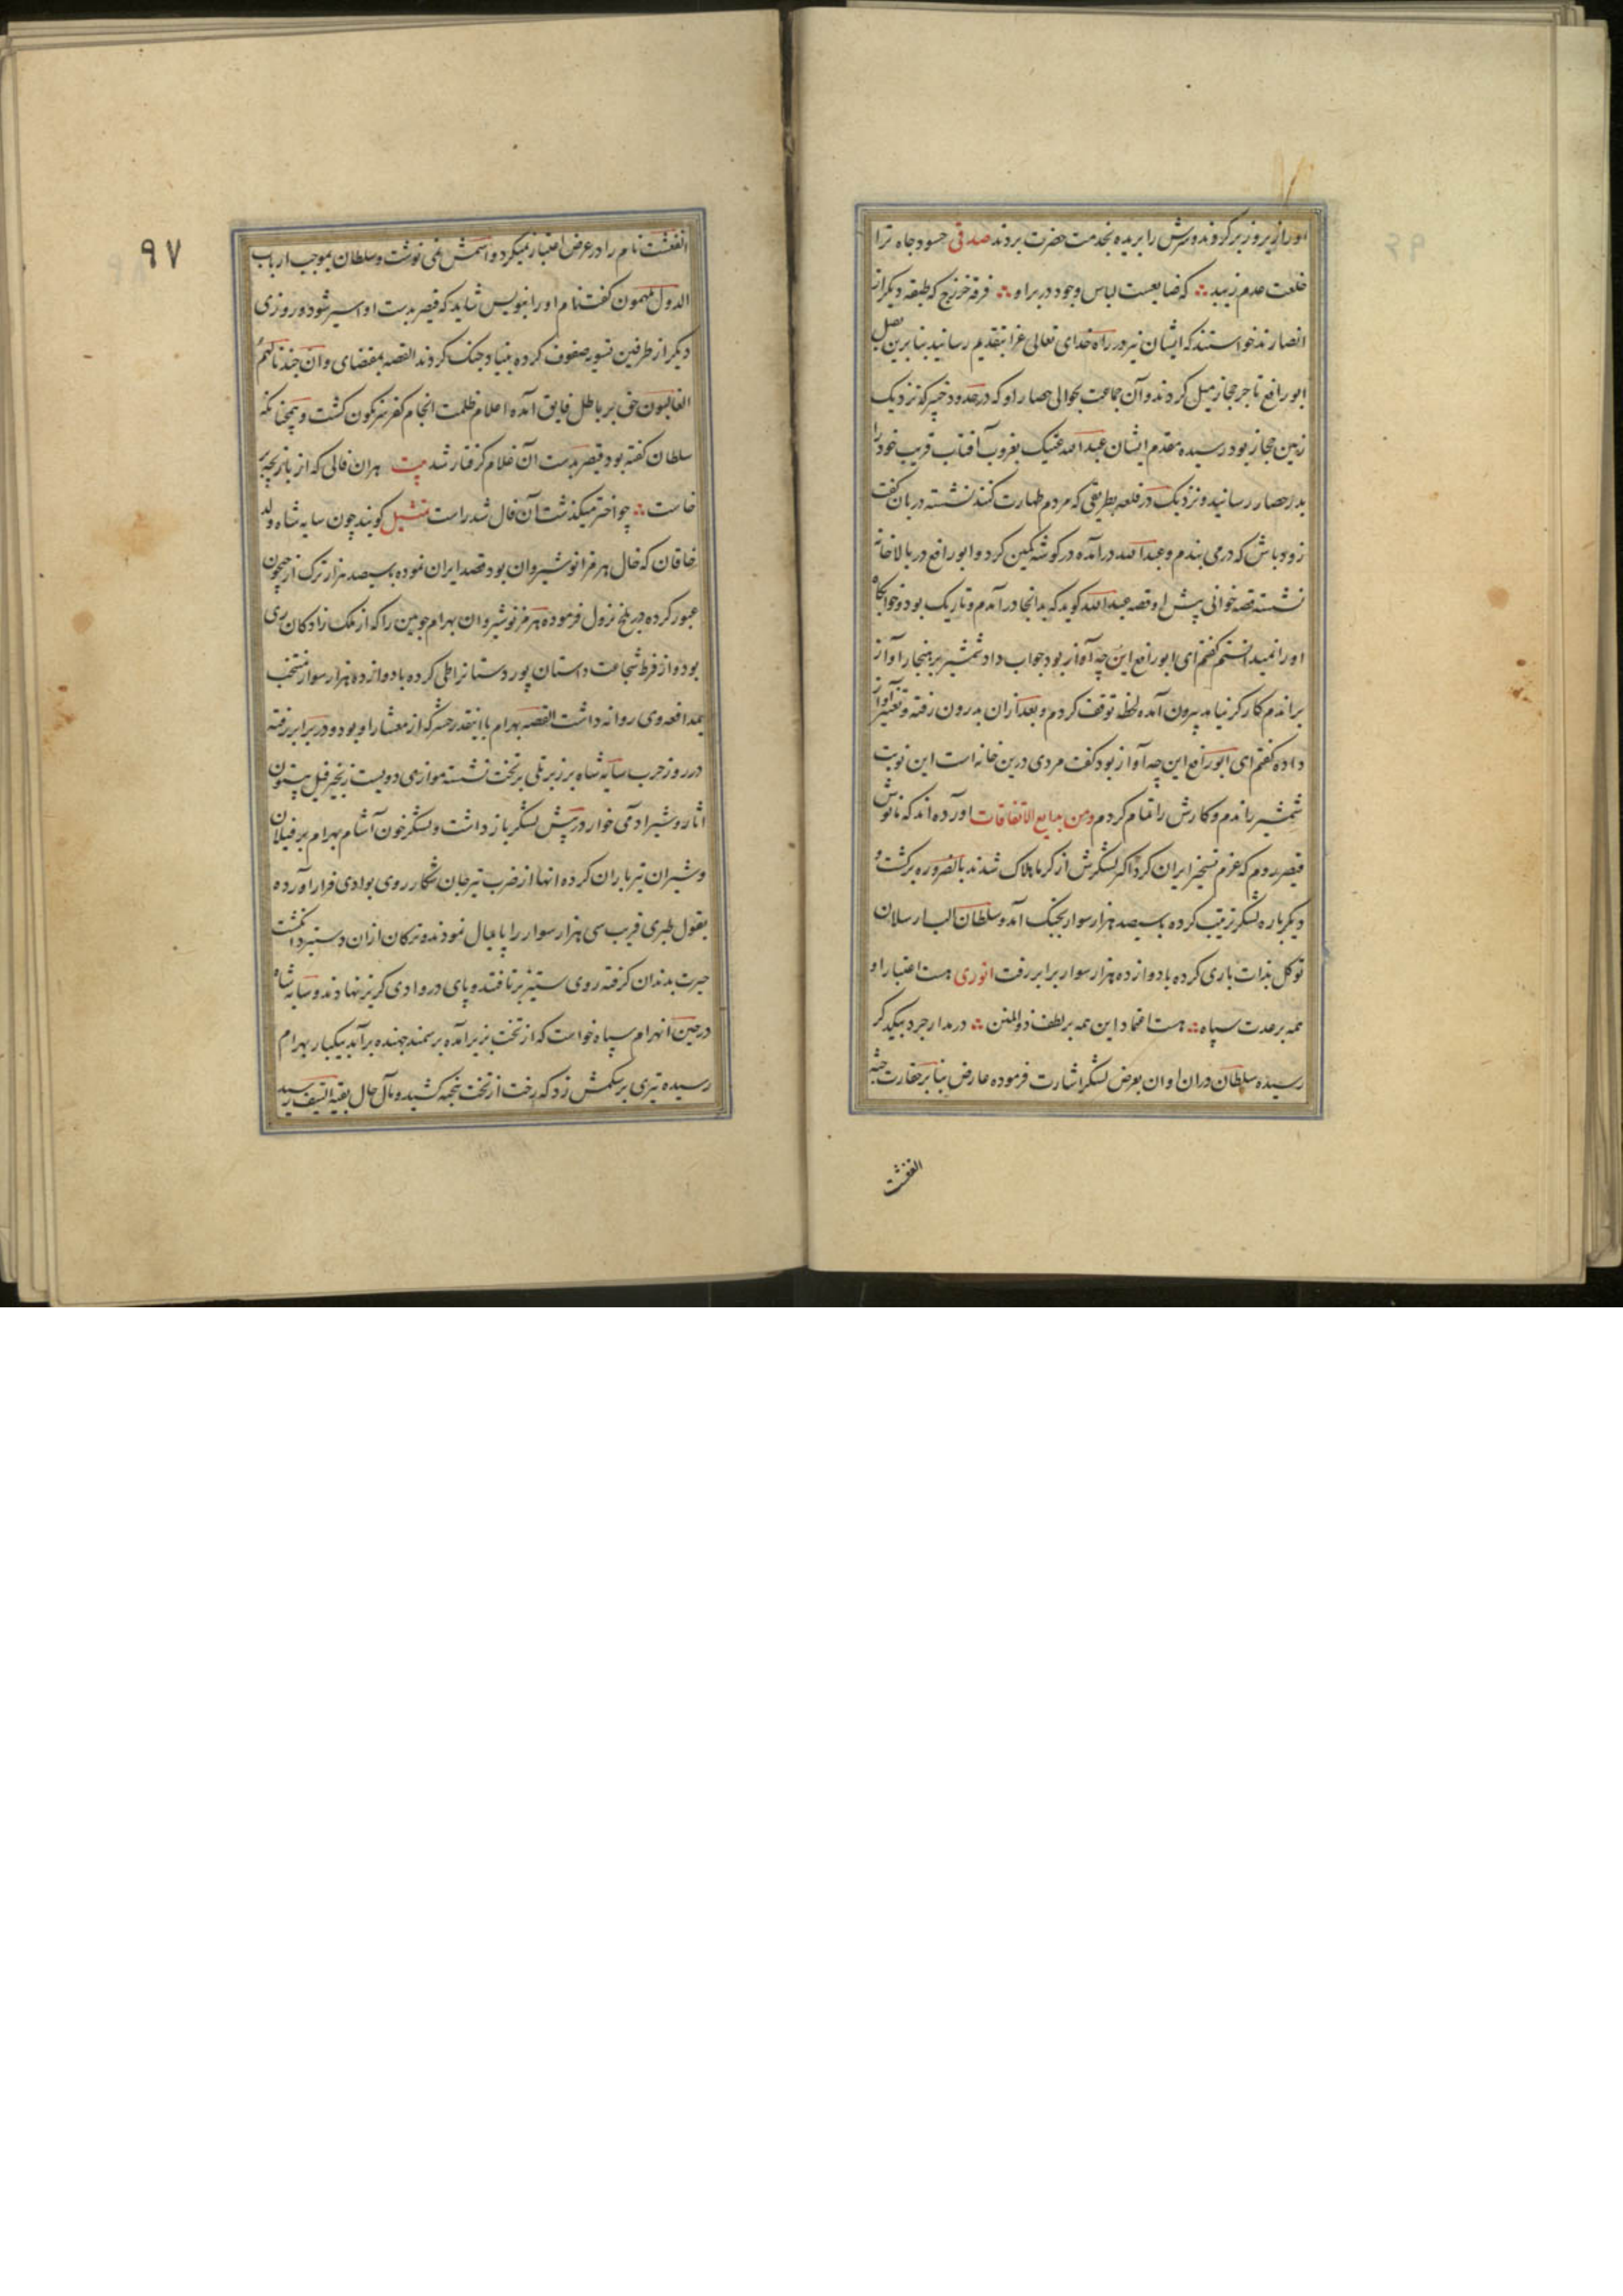 او را زیر و زبر کردند و سرش را بریده بخدمت حضرت بردند صدقی حسود جاه ترا
خلعت عدم زیبد ∴ که ضایعست لباس وجود در بر او ∴ فرقه خزرج که طبقه دیکر از
انصارند خواستند که ایشان نیز در راه خدای تعالی غزا بتقدیم رسانید بنابرین بقتل
ابورافع تاجر حجاز میل کردند و آن جماعت بحوالی حصار او که در حدود خیبر کنزدیک
زمین حجاز بود رسیده مقدم ایشان عبدالله عتیک بغروب آفتاب قریب خود را
بدر حصار رسانید و نزدیک در قلعه بطریقی که مردم طهارت کنند نشسته دربان کفت
زود باش که در می بندم و عبدالله درآمده در کوشه کمین کرد و ابورافع در بالاخانه
نشسته قصه خوانی پیش او قصه عبدالله کوید که بدانجا درآمدم و تاریک بود و خوابکاه
او را نمیدانستم کفتم ای ابورافع این چه آواز بود جواب داد شمشیر بر هنجار آواز
براندم کارکر نیامد بیرون آمده لحظه توقف کردم و بعد ازان بدرون رفته و تغییر آواز
داده کفتم ای ابورافع این چه آواز بود کفت مردی درین خانه است این نوبت
شمشیر راندم و کارش را تمام کردم ومن بدایع الاتفاقات آورده اند که مانوش
قیصر روم که عزم تسخیر ایران کرد اکثر لشکرش از کرما هلاک شدند بالضروره برکشت و
دیکر باره لشکر ترتیب کرده با سیصد هزار سوار بجنک آمد و سلطان الب ارسلان
توکل بذات باری کرده با دوازده هزار سوار برابر رفت انوری هست اعتبار او
همه بر عدت سپاه ∴ هست اعتماد این همه بر لطف ذوالمنن ∴ در مدارجرد بیکدکر
رسیده سلطان دران اوان بعرض لشکر اشارت فرموده عارض بنا بر حقارت جثه
الغفشت
۹۷
الغفشت نام را در عرض اعتبار نمیکرد و اسمش نمی نوشت و سلطان بموجب ارباب
الدول ملهمون کفت نام او را بنویس شاید که قیصر بدست او اسیر شود و روز
دیکر از طرفین تسویه صفوف کرده بنیاد جنک کردند القصه بمقتضای وان جندنا لهم
الغالبون حق بر باطل فایق آمده اعلام ظلمت انجام کفر سرنکون کشت و همچنانکه
سلطان کفته بود قیصر بدست آن غلام کرفتار شد بیت هران فالی که از بازیچه بر
خاست ∴ چو اختر میکذشت آن فال شد راست تمثیل کویند چون سایه شاه ولد
خاقان که خال هرمز انوشیروان بود قصد ایران نموده با سیصد هزار ترک از جیحون
عبور کرده در بلخ نزول فرموده هرمز نوشیروان بهرام چوبین را که از ملک زادکان ری
بود و از فرط شجاعت داستان پور دستانرا طی کرده با دوازده هزار سوار منتخب
بمدافعه وی روانه داشت القصه بهرام با اینقدر حشر که از معشار او بود در برابر رفته
در روز حرب سایه شاه بر زبر تلی بر تخت نشسته موازی دویست زنجیر فیل بیستون
آثار و شیر آدمی خوار در پیش لشکر بازداشت و لشکر خون آشام بهرام بر فیلان
و شیران تیرباران کرده آنها از ضرب تیر جان شکار روی بوادی فرار آورده
بقول طبری قریب سی هزار سوار را پایمال نمودند و ترکان ازان دستبرد انکشت
حیرت بدندان کرفته روی ستیز برتافتند و پای در وادی کریز نهادند و سایه شاه
در حین انهزام سپاه خواست که از تخت بزیر آمده بر سمند جهنده برآید بیکبار بهرام
رسیده تیری بر شکمش زد که رخت از تخت بتخته کشید و مآل حال بقیة السیف رسید